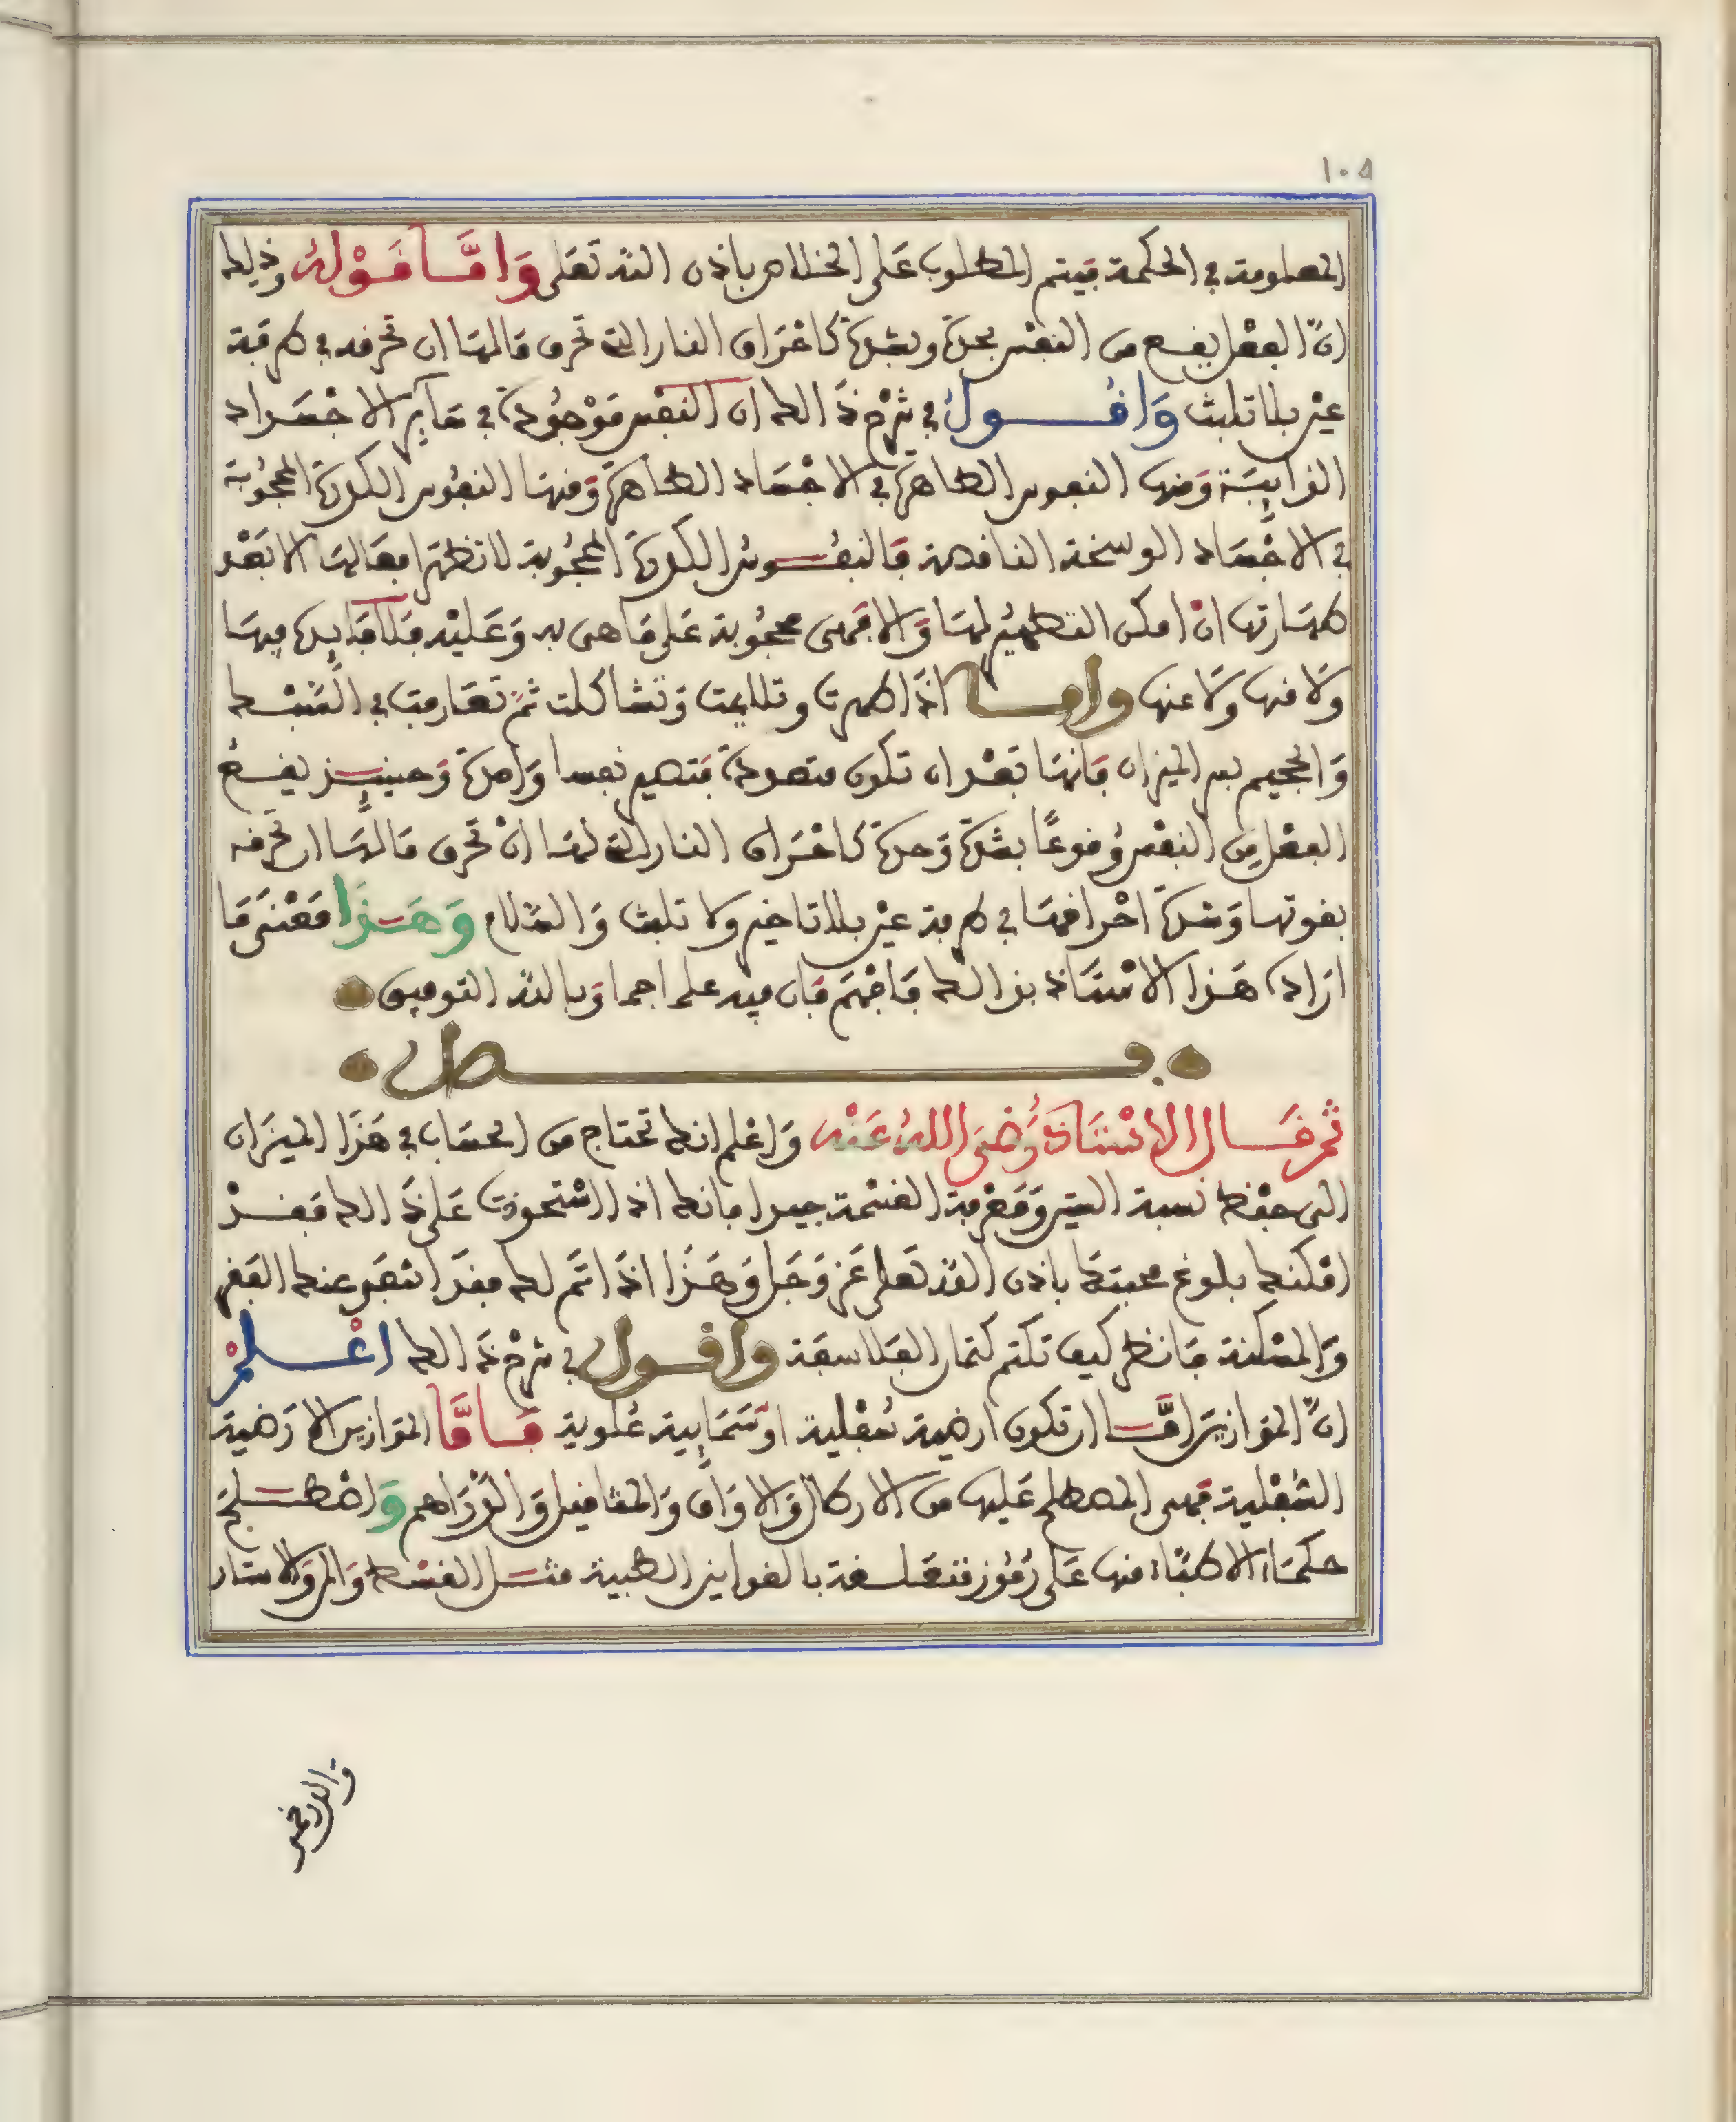 ١٠٥
المعلومة في الحكمة فيتم المطلوب على الخلاص باذن الله تعلى وَامَّا قَوْلُهُ وذلك
انّ الفعل يقع من النفس بحدة وبشدة كاحْرَاق النار التي تحرق مَا لهَا ان تحرقه في طرفة
عين بلا تلبث وَاقُولُ في شرح ذَالك ان النفس مَوْجُودة في سَاير الاجْسَاد
الذايبَة وَمنها النفوس الطاهرة في الاجْسَاد الطاهرة وَمنها النفوس الكدرة المحجُوبة
في الاجْسَاد الوسخة الناقصة فَالنفُوسُ الكدرة المحجُوبة لا تظهر افعَالهَا الا بَعْد
طهَارتها انْ امكن التطهير لهَا وَالا فهى محجُوبة عَلى مَا هى به وَعَليْه فلا فَايدة فيهَا
وَلا منها وَلا عنها وامــا اذَا طهرت وتلايمت وَتشاكلت ثمّ تعَارفت في القسْط
وَالحجيم بهـ الميزان فَانهَا بَعْد ان تكون متعددة فتصير نفسا وَاحدة وَحينيـذ يقـع
الفعْل مِن النفْس وُقوعًا بشدة وَحدة كاحْرَاق النار التي لهَا انْ تحرق مَا لهَا ان تحرقه
بقوتها وَشدة احْراقهَا في طرفة عيْن بلا تاخير ولا تلبث وَالسَّلام وَهَـذَا مَعْنَى مَا
ارَاده هَذا الاسْتَاذ بذالك فَافهَم فَان فيه علما جما وَبالله التوفيق
فـصل
ثم قَـال الاسْتَاذ رَضىَ اللهُ عَنْه وَاعْلم انك تحتاج من الحسَاب في هَذَا الميزَان
الى حفْظ نسبة الستين وَمَعْرفة القسْمة جيدا فانك اذا اسْتحوذت عَلى ذَالك فقـدْ
امْكنك بلوغ محبتك باذن الله تعلى عَز وَجَل وَهَذَا اذَا تَم لك فقدَ انتفى عنك الفَقر
وَالمسْكنة فَانظر كيف تكتم كتمان الفَلاسفَة واقــول في شرْح ذَالك اعْـلمْ
انّ المَوازين امَّـا ان تكون ارضية سُفْلية اوْ سَمَايية عُلوية فَـامَّا المَوازين الارْضية
السُّفْلية فهى المصطلح عَليها من الارطال وَالاوَاق وَالمثاقيل وَالدّرَاهم وَاصْطـلح
حكمَاء الاطبَّاء منها عَلى رُمُوز متعَلـقة بالقوانين الطبية مثـل القسْط وَالمر وَالاستار
والدرخمى